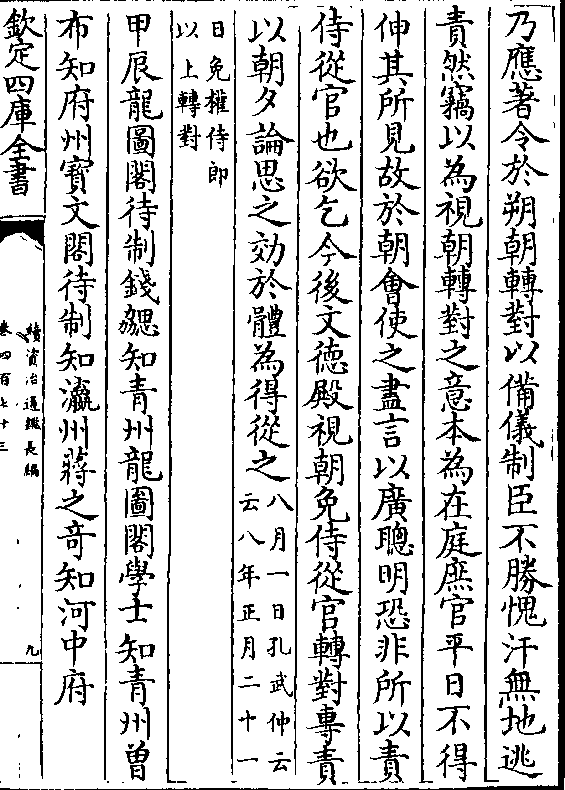 乃應著令於朔朝轉對以備儀制臣不勝愧汗無地逃
責然竊以為視朝轉對之意本為在庭庶官平日不得
伸其所見故於朝會使之盡言以廣聰明恐非所以責
侍從官也欲乞今後文德殿視朝免侍從官轉對專責
以朝夕論思之効於體為得從之八月一日孔武仲云
云八年正月二十一
日免權侍郎
以上轉對
甲辰龍圖閣待制錢勰知青州龍圖閣學士知青州曾
布知府州寳文閣待制知瀛州蔣之竒知河中府
欽定四庫全書
續資治通鑑長編
卷四百七十三
九